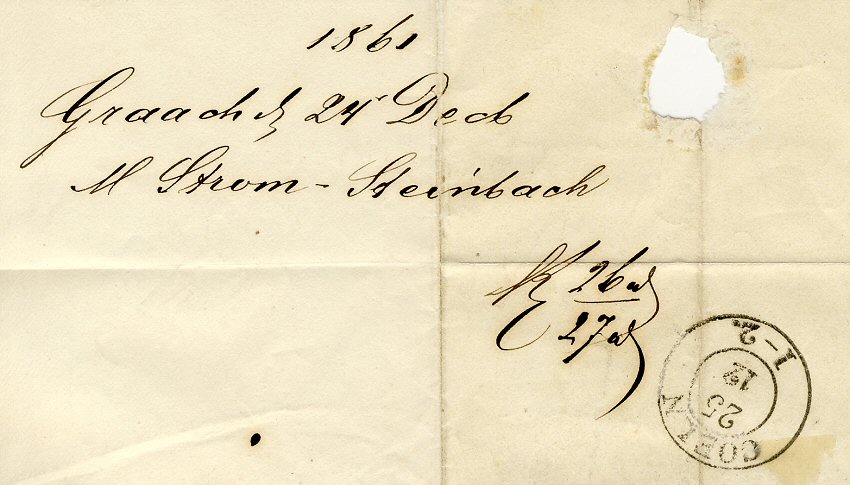 1861
Graach d 24 Decb
M Strom-Steinbach
26
27
COELN
25
12
1-2